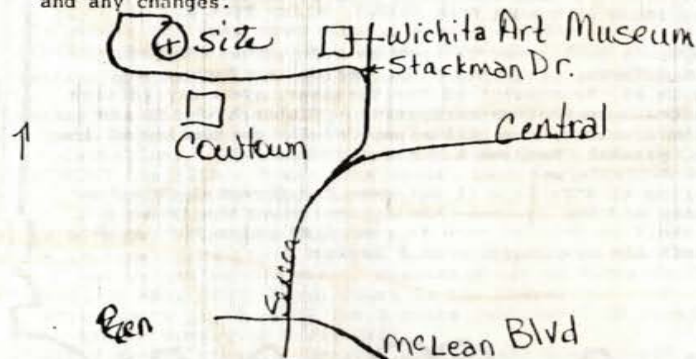 and any changes.
Site
Wichita Art Museum
Stackman Dr.
Cowtown
Central
McLean Blvd